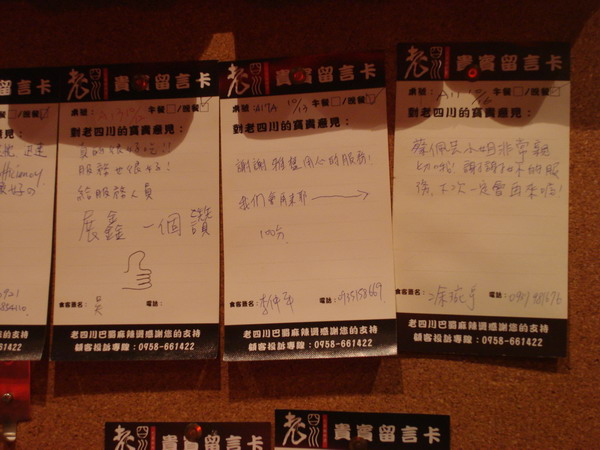 老四川 貴賓留言卡
桌號： 午餐□/晚餐☑
對老四川的寶貴意見：
食的很好吃!?
服務也很好!
給服務人員
展鑫 一個 讚
食客簽名： 吳 電話：
老四川巴蜀麻辣燙感謝您的支持
顧客投訴專線：0958-661422
老四川 貴賓留言卡
桌號： A17A 10/17 午餐□/晚餐☑
對老四川的寶貴意見：
謝謝 雅慧 用心的服務!
我們會再來耶
100分
食客簽名： 電話：0955158669
老四川巴蜀麻辣燙感謝您的支持
顧客投訴專線：0958-661422
老四川 貴賓留言卡
桌號： A11 午餐□/晚餐☑
對老四川的寶貴意見：
蔡佩芸小姐非常親
切啦! 謝謝如此的服
務，下次一定會再來唷!
食客簽名： 電話：
老四川巴蜀麻辣燙感謝您的支持
顧客投訴專線：0958-661422
留言卡
寶貴意見：
迅速
efficiency
電話：
0921
感謝您的支持
661422
老四川 貴賓留言卡
老四川 貴賓留言卡